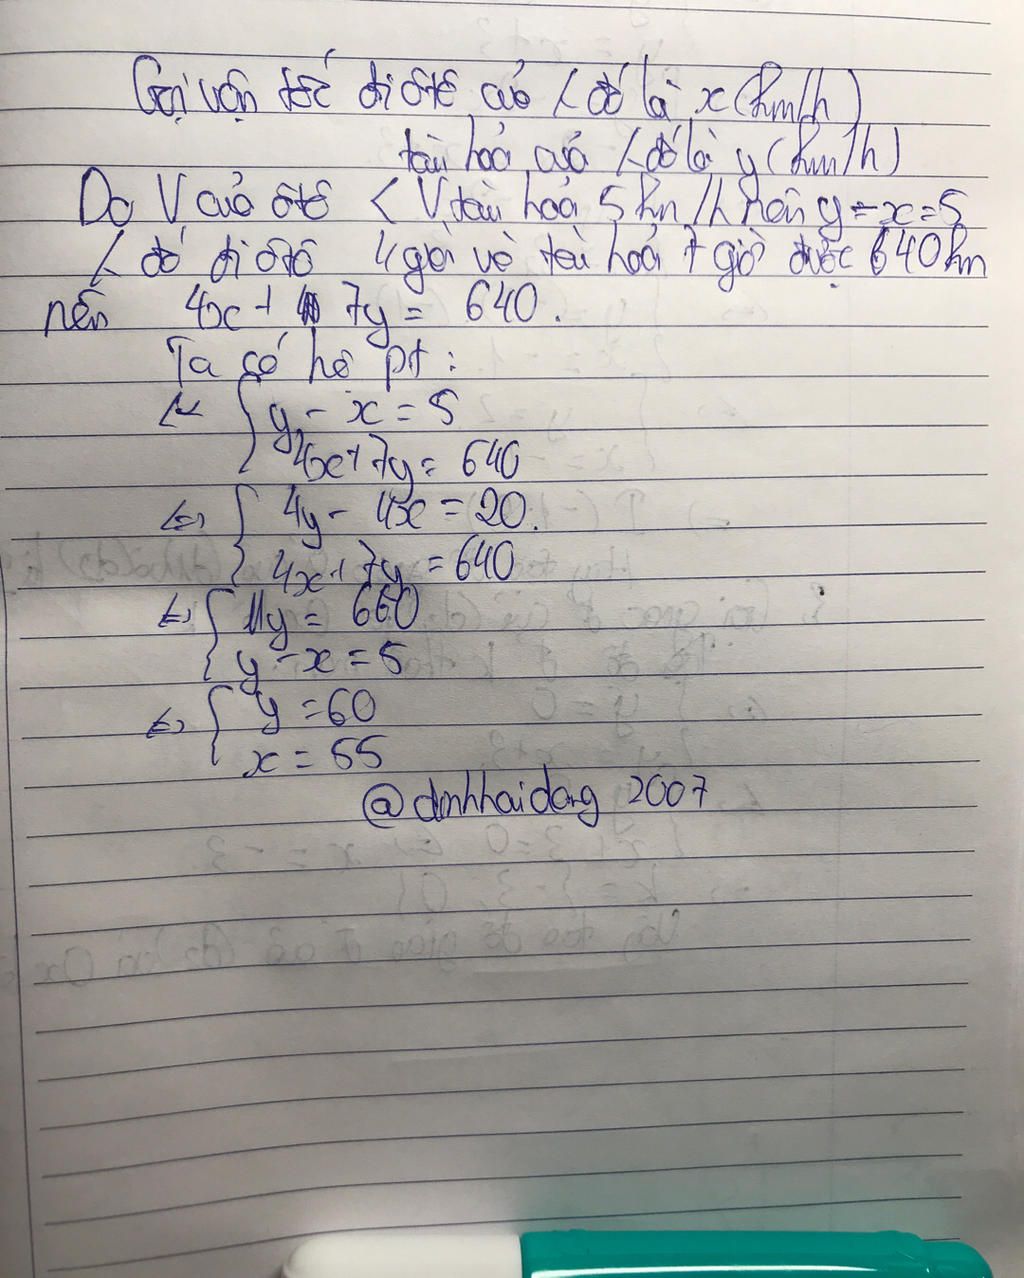 Gọi vận tốc đi ôtô của L đó là x (km/h)
tàu hoả của L đó là y (km/h)
Do V của ôtô < V tàu hoả 5 km/h nên y - x = 5
L đó đi ôtô 4 giờ và tàu hoả 7 giờ được 640 km
nên 4x + 7y = 640.
Ta có hệ pt:
{ y - x = 5
4x + 7y = 640
<=> { 4y - 4x = 20.
4x + 7y = 640
<=> { 11y = 660
y - x = 5
<=> { y = 60
x = 55
@dinhhaidang 2007